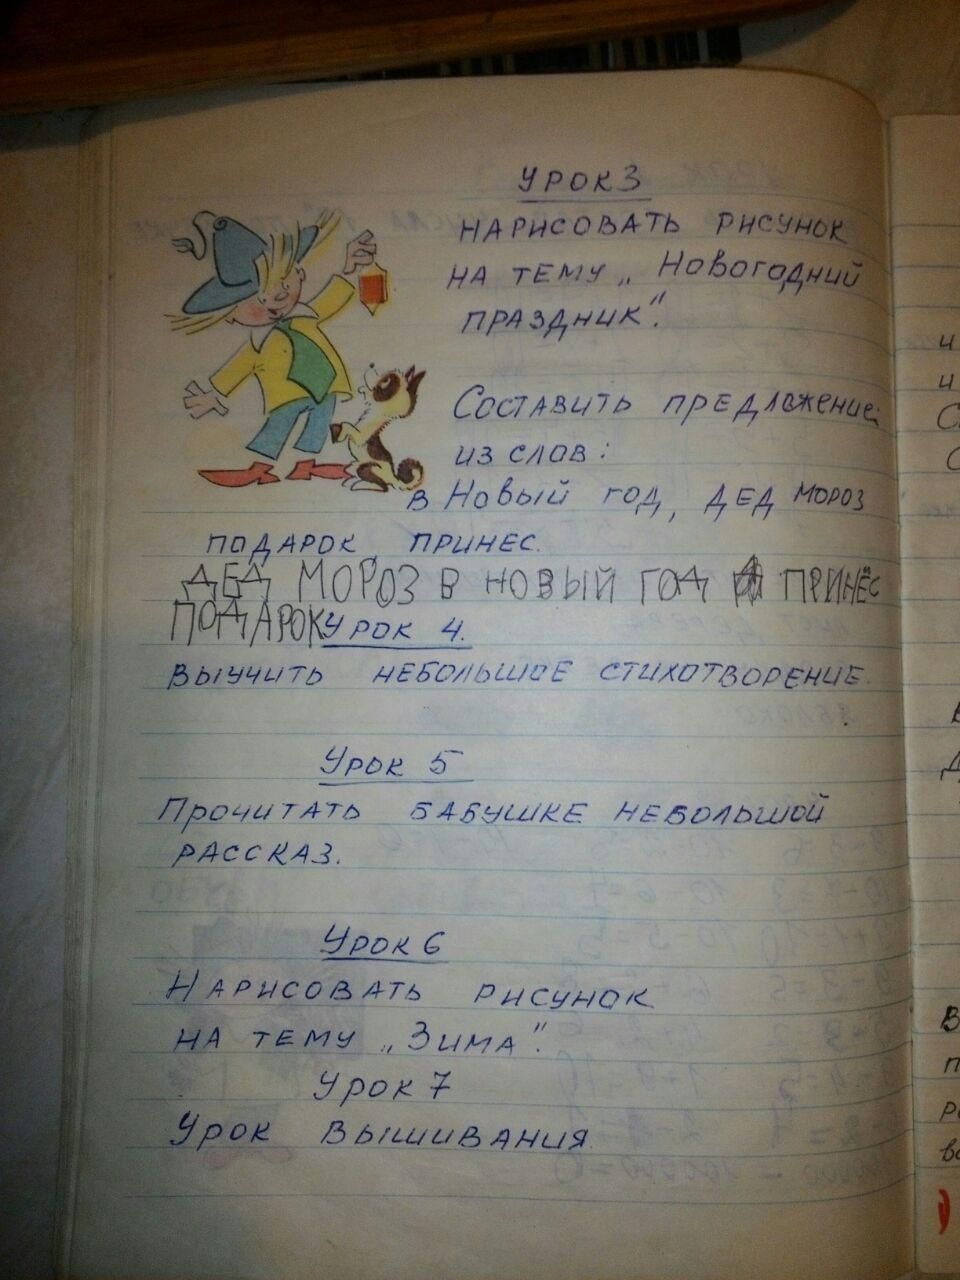 Урок 3
НАРИСОВАТЬ РИСУНОК
НА ТЕМУ „Новогодний
ПРАЗДНИК".
Составить предложение
из слов:
в Новый год, ДЕД МОРОЗ
ПОДАРОК, ПРИНЕС.
ДЕД МОРОЗ В НОВЫЙ ГОД ПРИНЁС
ПОДАРОК
Урок 4.
ВЫУЧИТЬ НЕБОЛЬШОЕ СТИХОТВОРЕНИЕ.
Урок 5
Прочитать БАБУШКЕ НЕБОЛЬШОЙ
РАССКАЗ.
Урок 6
НАРИСОВАТЬ РИСУНОК
НА ТЕМУ „Зима".
Урок 7
Урок ВЫШИВАНИЯ.